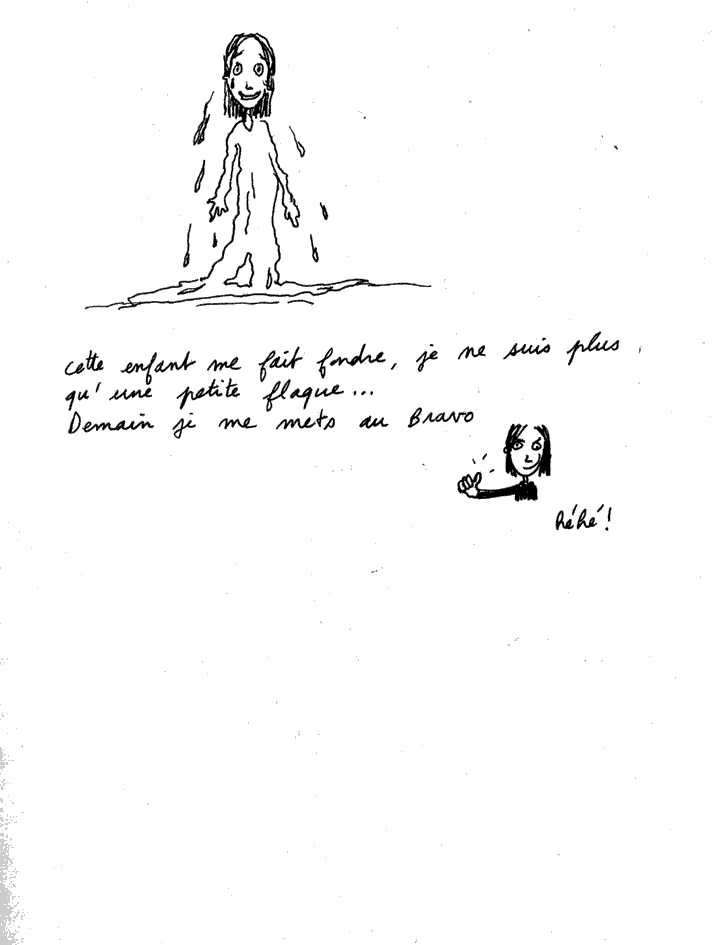 cette enfant me fait fondre, je ne suis plus
qu'une petite flaque...
Demain je me mets au Bravo
héhé!